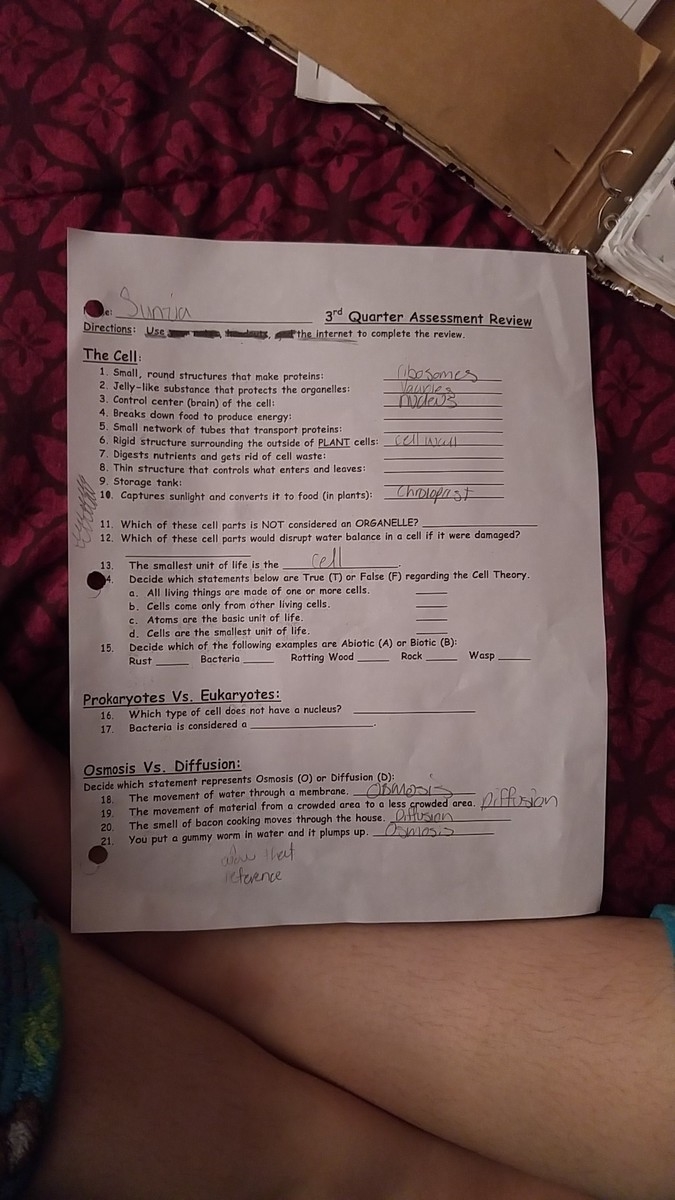 e: Suniia
3rd Quarter Assessment Review
Directions: Use the internet to complete the review.
The Cell:
1. Small, round structures that make proteins: ribosomes
2. Jelly-like substance that protects the organelles:
3. Control center (brain) of the cell: nucleus
4. Breaks down food to produce energy:
5. Small network of tubes that transport proteins:
6. Rigid structure surrounding the outside of PLANT cells: cell wall
7. Digests nutrients and gets rid of cell waste:
8. Thin structure that controls what enters and leaves:
9. Storage tank:
10. Captures sunlight and converts it to food (in plants):
11. Which of these cell parts is NOT considered an ORGANELLE?
12. Which of these cell parts would disrupt water balance in a cell if it were damaged?
13. The smallest unit of life is the cell.
4. Decide which statements below are True (T) or False (F) regarding the Cell Theory.
a. All living things are made of one or more cells.
b. Cells come only from other living cells.
c. Atoms are the basic unit of life.
d. Cells are the smallest unit of life.
15. Decide which of the following examples are Abiotic (A) or Biotic (B):
Rust Bacteria Rotting Wood Rock Wasp
Prokaryotes Vs. Eukaryotes:
16. Which type of cell does not have a nucleus?
17. Bacteria is considered a .
Osmosis Vs. Diffusion:
Decide which statement represents Osmosis (O) or Diffusion (D):
18. The movement of water through a membrane. Osmosis
19. The movement of material from a crowded area to a less crowded area. Diffusion
20. The smell of bacon cooking moves through the house. Diffusion
21. You put a gummy worm in water and it plumps up. Osmosis
that
reference